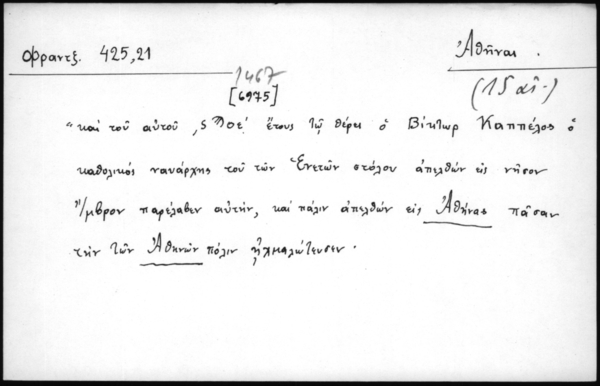 Φραντζ. 425,21
Ἀθῆναι.
1467
[6975]
(15 αἰ.)
"καὶ τοῦ αὐτοῦ ͵ςϠοε΄ ἔτους τῷ θέρει ὁ Βίκτωρ Καππέλος ὁ
καθολικὸς ναυάρχης τοῦ τῶν Ἐνετῶν στόλου ἀπελθὼν εἰς νῆσον
Ἴμβρον παρέλαβεν αὐτήν, καὶ πάλιν ἀπελθὼν εἰς Ἀθήνας πᾶσαν
τὴν τῶν Ἀθηνῶν πόλιν ᾐχμαλώτευσεν.